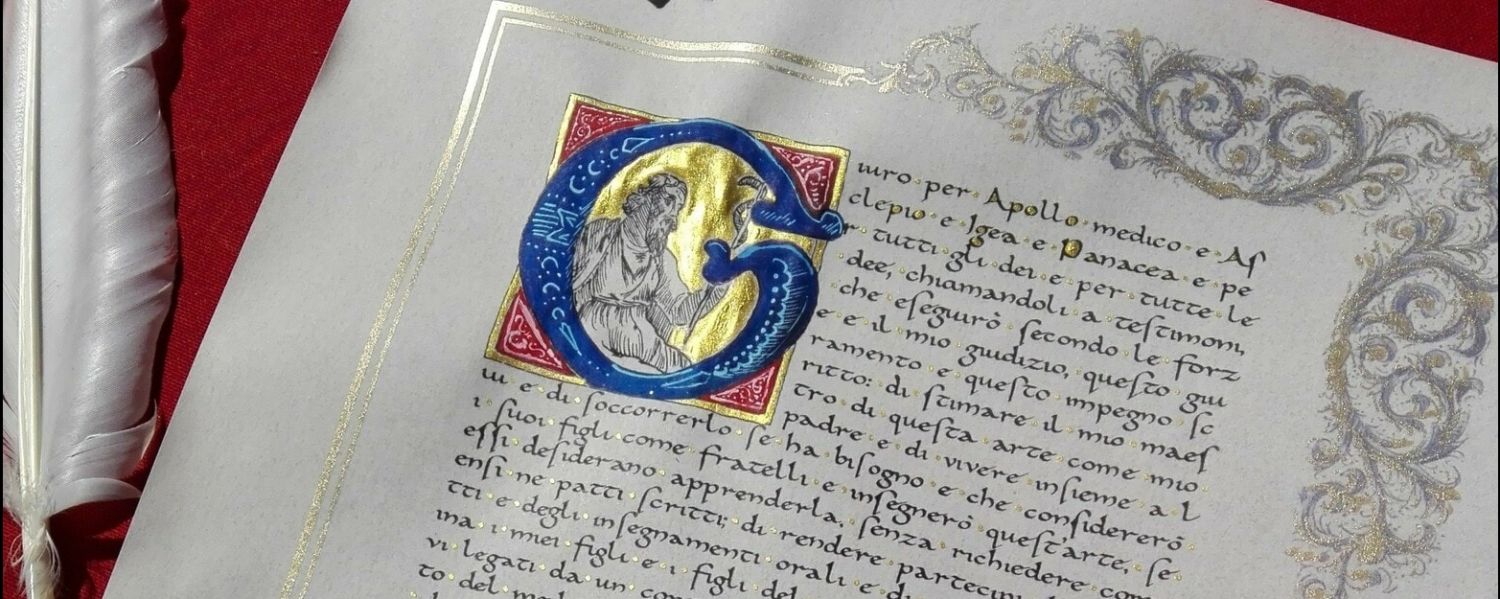 Giuro per Apollo medico e As
clepio e Igea e Panacea e pe
r tutti gli dei e per tutte le
dee, chiamandoli a testimoni,
che eseguirò secondo le forz
e e il mio giudizio, questo giu
ramento e questo impegno sc
ritto: di stimare il mio maes
tro di questa arte come mio
padre e di vivere insieme a l
ui e di soccorrerlo se ha bisogno e che considererò
i suoi figli come fratelli e insegnerò quest'arte, se
essi desiderano apprenderla, senza richiedere com
ensi ne patti scritti; di rendere partecipi
tti e degli insegnamenti orali e d
ina i miei figli e i figli del
vi legati da un con
to del